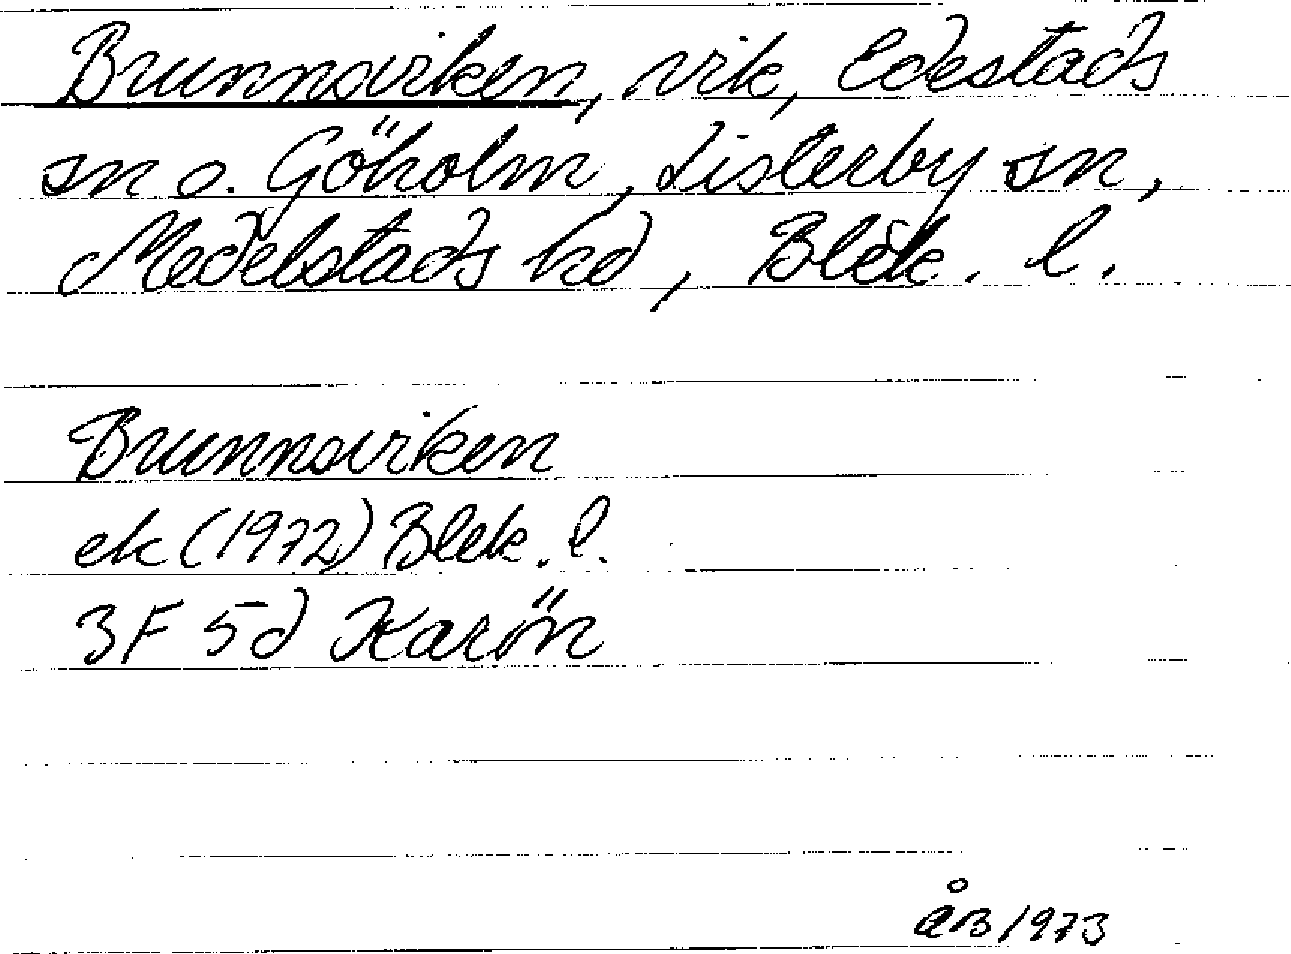 Brunnsviken, vik, Edestads
sn o. Göholm, Listerby sn,
Medelstads hd, Blek. l.
Brunnsviken
ek (1972) Blek. l.
3F 5d Karön
ÅB 1973